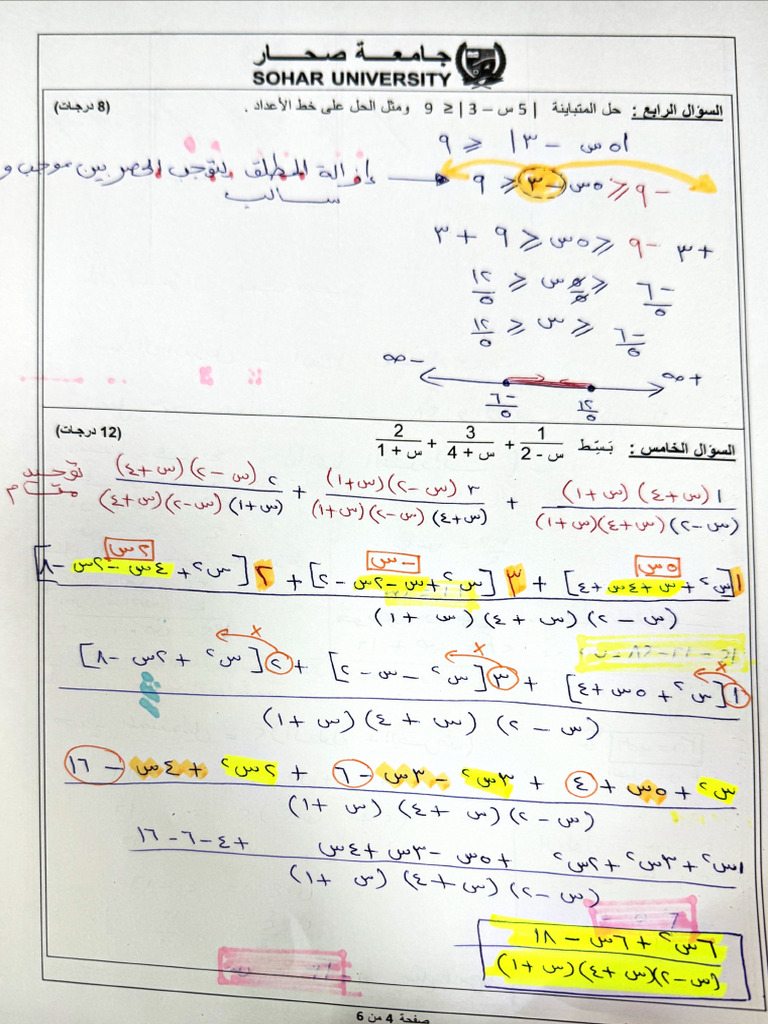 جامعة صحار
SOHAR UNIVERSITY
السؤال الرابع : حل المتباينة | 5 س – 3 | ≤ 9 ومثل الحل على خط الأعداد . (8 درجات)
|٥س – ٣| ≤ ٩
-٩ ≤ ٥س - ٣ ≤ ٩ ← إزالة المطلق يتوجب الحصر بين موجب و سالب
+٣ -٩ ≤ ٥س ≤ ٩ + ٣
-٦/٥ ≤ ٥س/٥ ≤ ١٢/٥
-٦/٥ ≤ س ≤ ١٢/٥
+∞ -∞
١٢/٥ -٦/٥
السؤال الخامس : بَسِّط 1/(س - 2) + 3/(س + 4) + 2/(س + 1) (12 درجات)
١(س+٤)(س+١)/(س-٢)(س+٤)(س+١) + ٣(س-٢)(س+١)/(س+٤)(س-٢)(س+١) + ٢(س-٢)(س+٤)/(س+١)(س-٢)(س+٤) توحيد مقام
٥س -س ٢س
١[س²+س+٤س+٤] + ٣[س²+س-٢س-٢] + ٢[س²+٤س-٢س-٨]
(س-٢)(س+٤)(س+١)
١[س²+٥س+٤] + ٣[س²-س-٢] + ٢[س²+٢س-٨]
(س-٢)(س+٤)(س+١)
س²+٥س+٤+٣س²-٣س-٦+٢س²+٤س-١٦
(س-٢)(س+٤)(س+١)
١س²+٣س²+٢س² +٥س-٣س+٤س +٤-٦-١٦
(س-٢)(س+٤)(س+١)
٦س²+٦س-١٨
(س-٢)(س+٤)(س+١)
صفحة 4 من 6